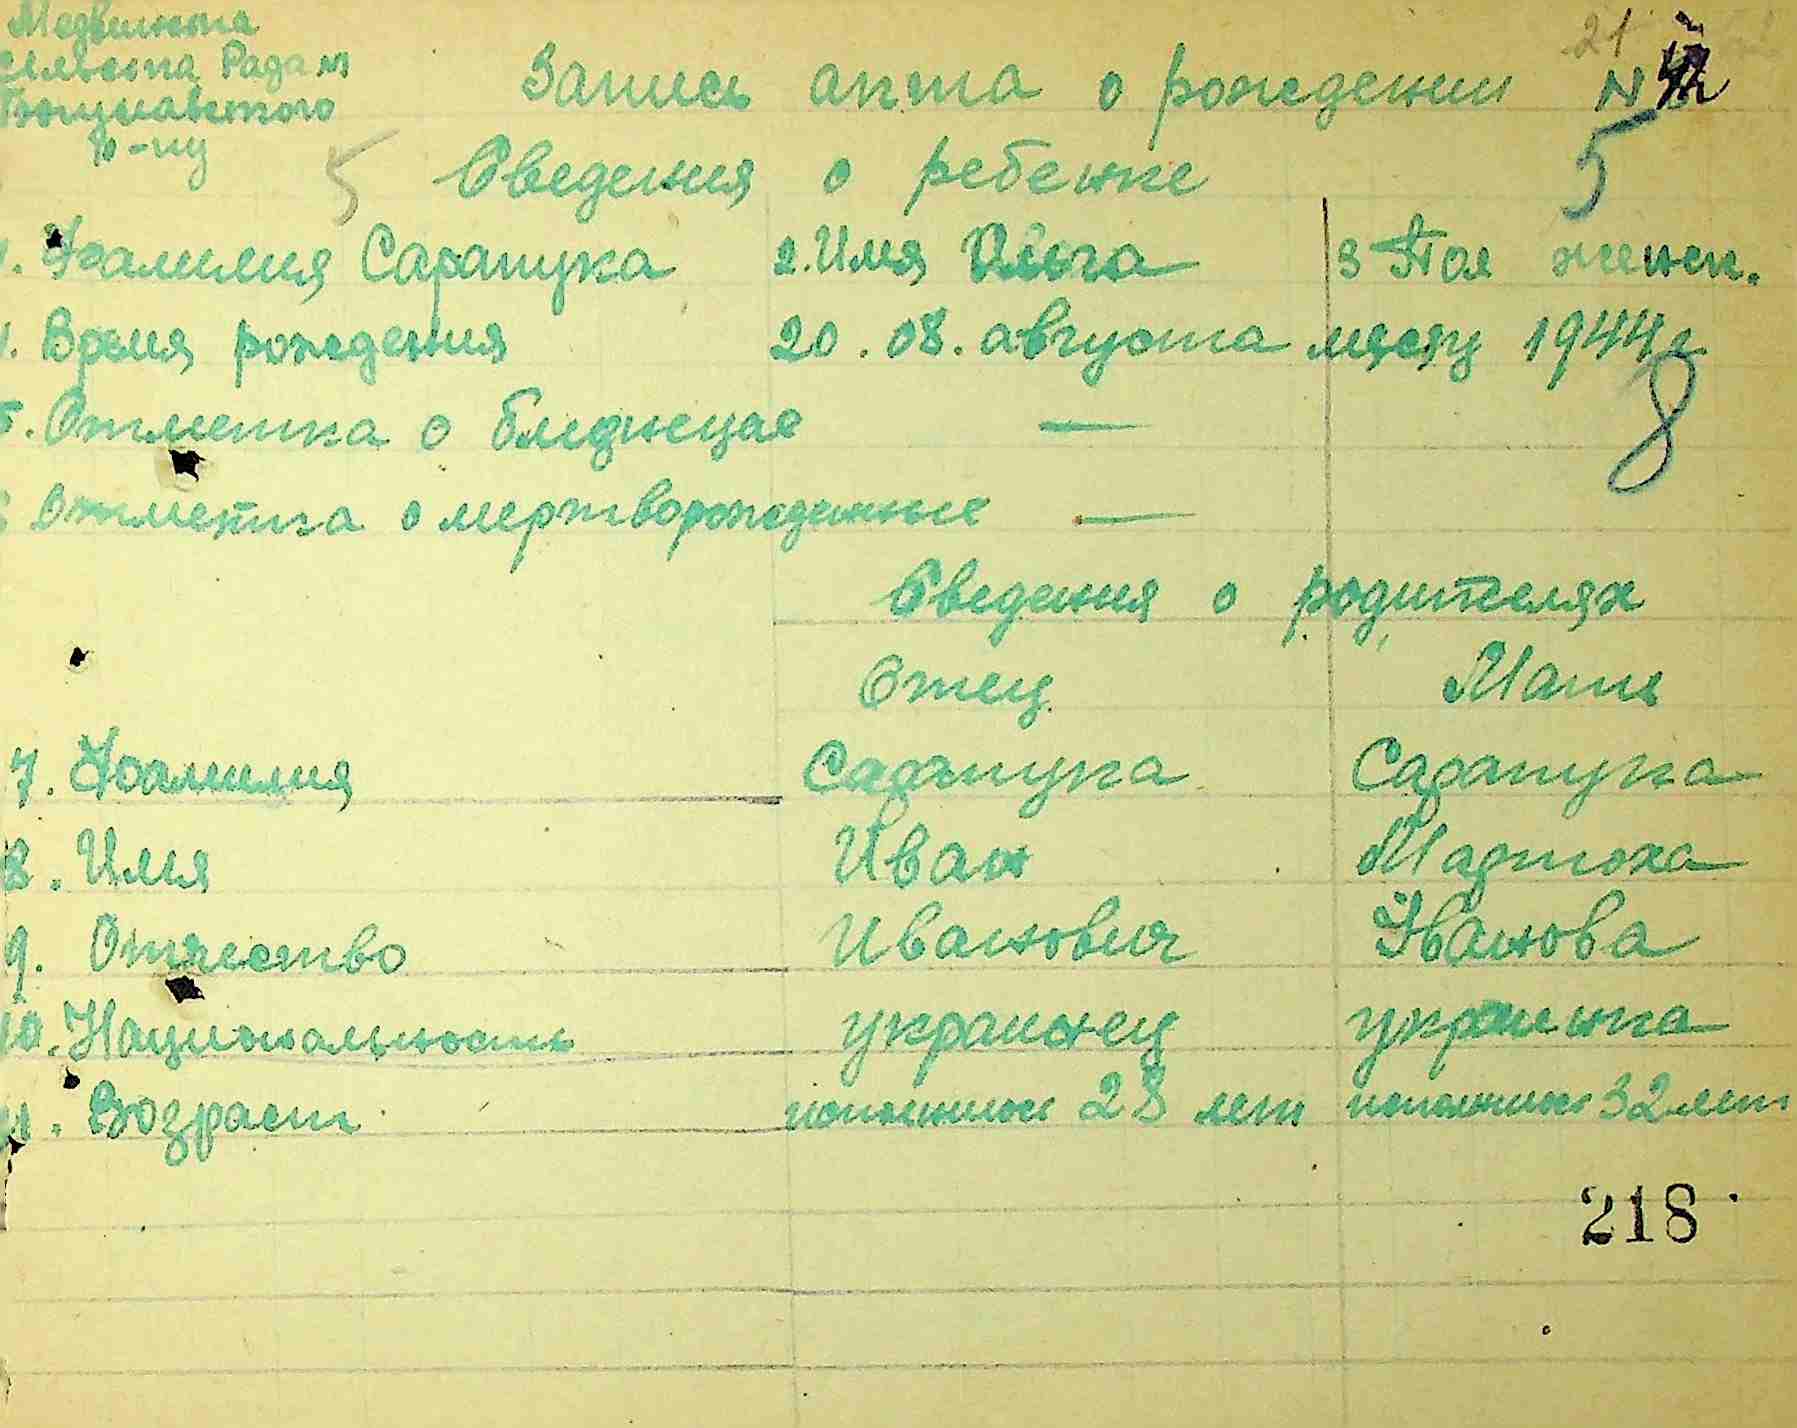 Медвинста
сельска Рада
Богуславского
р-ну
21
Запись акта о рождении N
5
Сведения о ребенке
5
1. Фамилия Сарапука 2. Имя Ольга 3 Пол женск.
4. Время рождения 20. 08. августа месяц 1944 г
8
5. Отметка о близнецах —
6 Отметка о мертворожденные —
Сведения о родителях
Отец Мать
7. Фамилия Сарапука Сарапука
8. Имя Иван Мартоха
9. Отчество Иванович Иванова
10. Национальность украинец украинка
11. Возраст исполнилось 28 лет исполнилось 32 лет
218